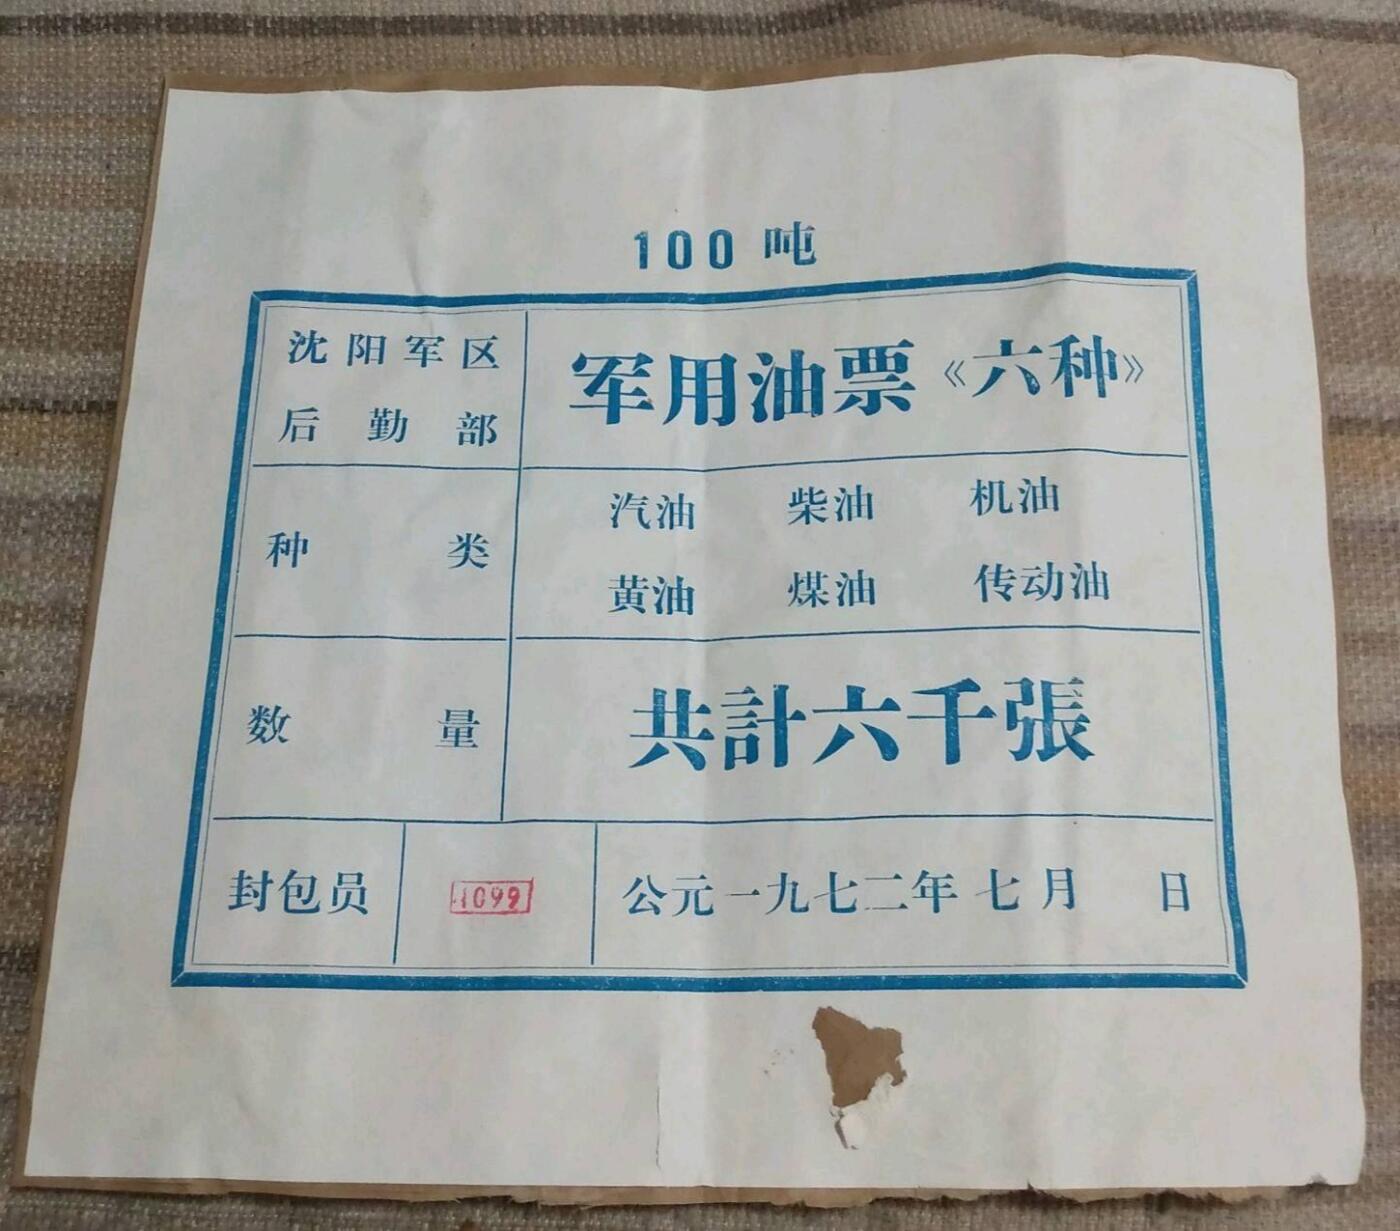 100 吨
沈阳军区
后勤部
军用油票《六种》
种类
汽油 柴油 机油
黄油 煤油 传动油
数量
共計六千張
封包员
1099
公元一九七二年七月 日